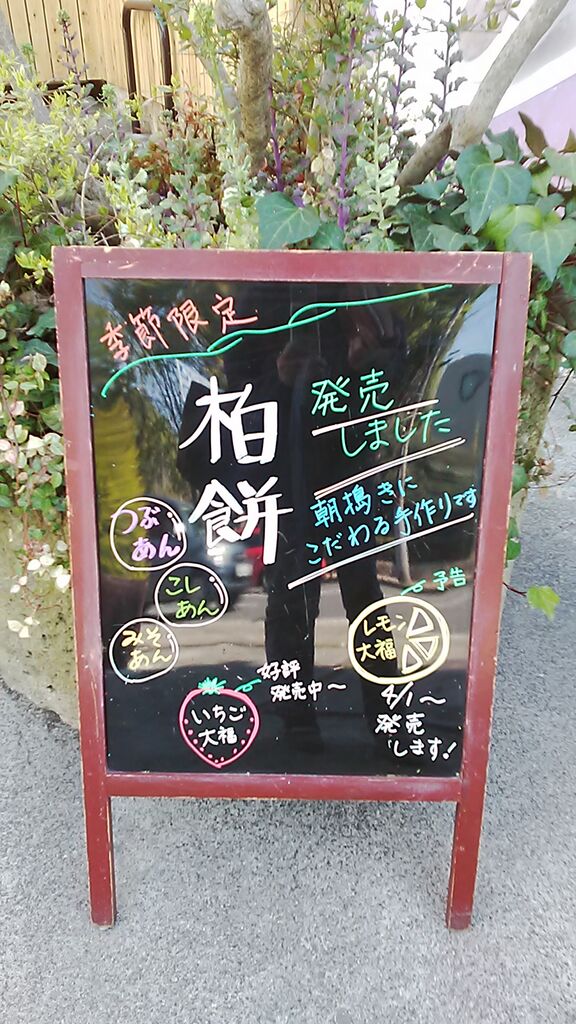 季節限定
柏餅
発売
しました
朝搗きに
こだわる手作りです
つぶ
あん
こし
あん
みそ
あん
予告
レモン
大福
4/1～
発売
します!
好評
発売中～
いちご
大福